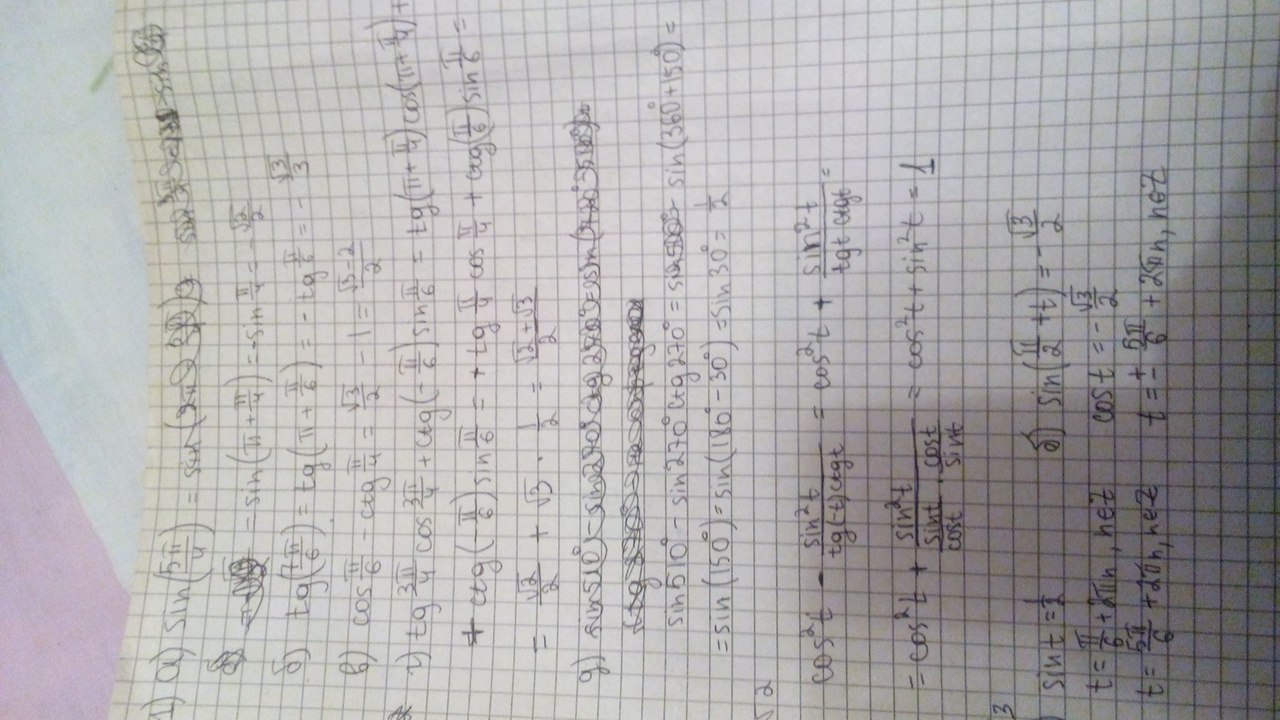 1) а) sin(5π/4) =
= sin(π + π/4) = -sin π/4 = - √2/2
б) tg(7π/6) = tg(π + π/6) = - tg π/6 = - √3/3
в) cos π/6 - ctg π/4 = √3/2 - 1 = √3-2/2
г) tg 3π/4 cos 3π/4 + ctg(-π/6) sin π/6 = tg(π + π/4) cos(π + π/4) +
+ ctg(-π/6) sin π/6 = + tg π/4 cos π/4 + ctg(π/6) sin π/6 =
= √2/2 + √3 · 1/2 = √2+√3/2
д)
sin510° - sin270° ctg270° = sin(360°+150°) =
= sin(150°) = sin(180°-30°) = sin30° = 1/2
√2
cos²t - sin²t/tg(-t)ctgt = cos²t + sin²t/tgt ctgt =
= cos²t + sin²t/(sint/cost · cost/sint) = cos²t + sin²t = 1
3
sint = 1/2
t = π/6 + 2πn, n∈Z
t = 5π/6 + 2πn, n∈Z
б) sin(π/2 + t) = - √3/2
cost = - √3/2
t = ± 5π/6 + 2πn, n∈Z